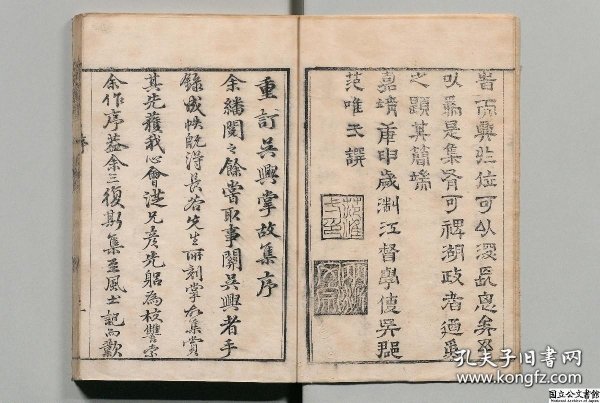 者而興非位可以漫艮息矣乃
以爲是集有可裨湖政者遒爲
之題其簡端
嘉靖庚申歲浙江督學使吳郡
范唯一譔
重訂吳興掌故集序
余繙閱之餘嘗取事關吳興者手
錄成帙旣得長谷先生所刻掌故集賞
其先獲我心會從兄彥先躬為校讐索
余作序蓋余三復斯集至風土記而歎
序
孔夫子旧书网
www.kongfz.com
国立公文書館
National Archives of Japan